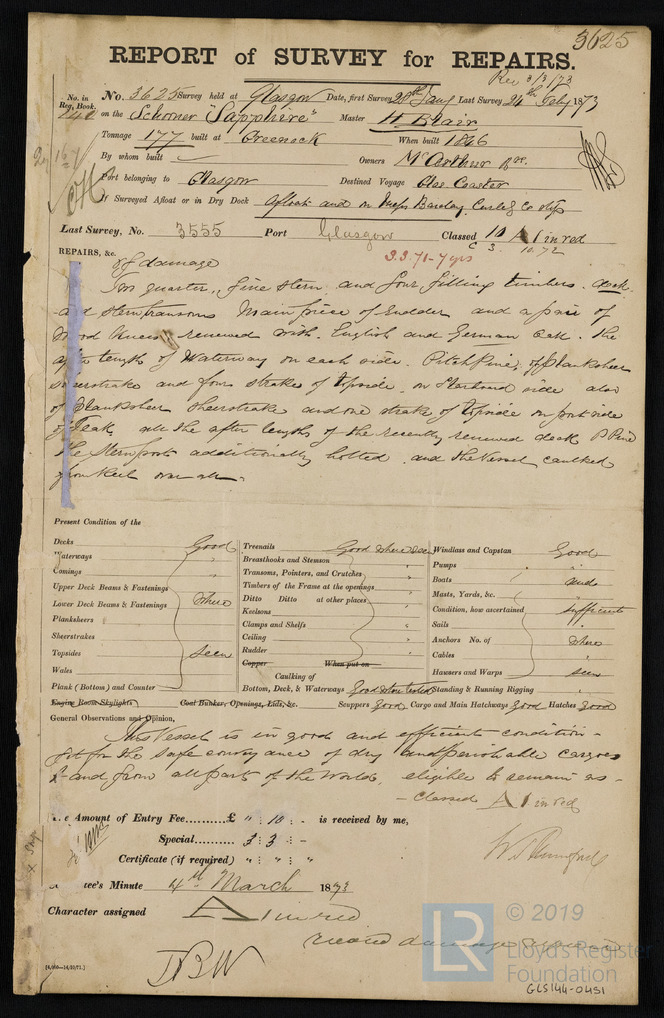 3625
REPORT of SURVEY for REPAIRS.
Rec 3/3/73
No. in Reg. Book. No. 3625 Survey held at Glasgow Date, first Survey 20th Jany Last Survey 24th Feby 1873
on the Schooner "Sapphire" Master H Blair
Tonnage 177 built at Greenock When built 1846
By whom built Owners McArthur
Port belonging to Glasgow Destined Voyage Coaster
If Surveyed Afloat or in Dry Dock Afloat and on Messrs Barclay, Curle & Co slip
Last Survey, No. 3555 Port Glasgow Classed 10 A 1 in red
C 3. 10.72
S.S. 71-7 yrs
REPAIRS, &c. of damage
Two quarter, five stern and four filling timbers. deck
and stern transoms Main piece of rudder and a pair of
Wood Knees renewed with English and German Oak. The
after length of Waterway on each side. Pitch Pine; of Planksheer
Sheerstrake and four strakes of Topside on Starboard side also
of Planksheer Sheerstrake and one strake of Topside on port side
of Teak, all the after lengths of the recently renewed deck P Pine
the Sternpost additionally bolted and the Vessel caulked
from Keel over all
Present Condition of the
Decks Good
Waterways "
Comings "
Upper Deck Beams & Fastenings
Lower Deck Beams & Fastenings where
Planksheers
Sheerstrakes
Topsides seen
Wales
Plank (Bottom) and Counter
Engine Room Skylights Coal Bunker, Openings, Lids, &c.
Treenails Good where seen
Breasthooks and Stemson "
Transoms, Pointers, and Crutches "
Timbers of the Frame at the openings "
Ditto Ditto at other places "
Keelsons "
Clamps and Shelfs "
Ceiling "
Rudder "
Copper When put on
Caulking of
Bottom, Deck, & Waterways Good
Scuppers Good Cargo and Main Hatchways Good Hatches Good
Windlass and Capstan Good
Pumps "
Boats and
Masts, Yards, &c.
Condition, how ascertained sufficient
Sails
Anchors No. of where
Cables
Hawsers and Warps seen
Standing & Running Rigging "
General Observations and Opinion,
This Vessel is in good and efficient condition
fit for the safe conveyance of dry and perishable cargoes
to and from all parts of the World, eligible to remain as
Classed A 1 in red
The Amount of Entry Fee.......... £ " : 10 : - is received by me,
Special.......... £ 3 : 3 : -
Certificate (if required) " : " : "
Minute 4th March 1873
Character assigned A 1 in red
record damage repaired
© 2019
LR
Lloyd's Register
Foundation
GLS144-0451